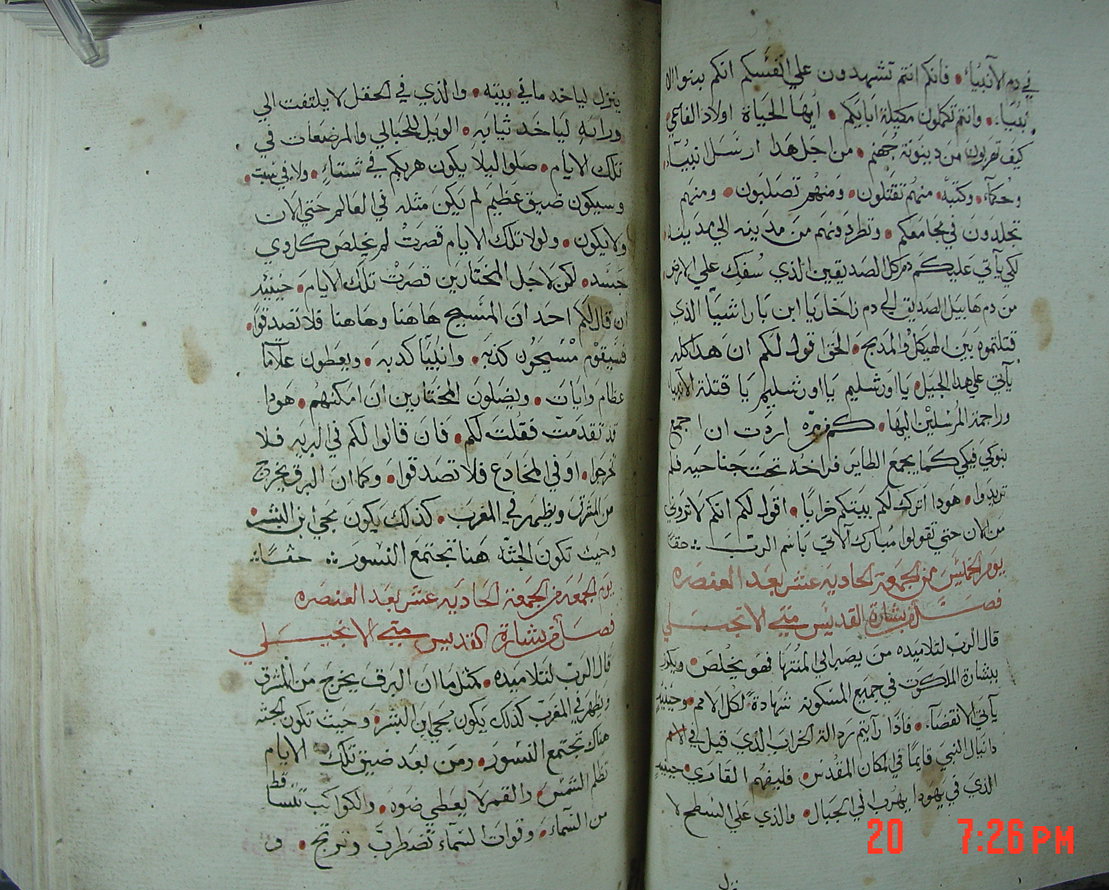 في دم الانبياء. فانكم انتم تشهدون علي انفسكم انكم بينو الا
نبياء. وانتم تكملون مكيلة ابايكم. ايها الحياة اولاد الافاعي
كيف تهربون من دينونة جهنم. من اجل هدا ارسل انبياء
وحكماء. وكتبه. منهم تقتلون. ومنهم تصلبون. ومنهم
تجلدون في مجامعكم. وتطردونهم من مدينه الي مدينه
لكي ياتي عليكم دم كل الصديقين الذي سفك علي الارض
من دم هابيل الصديق الي دم زاخاريا ابن باراشيا الذي
قتلتموه بين الهيكل والمدبح. الحق اقول لكم ان هدا كله
ياتي علي هدا الجيل. يا اورشليم يا اورشليم يا قتلة الانبيا
وراجمة المرسلين اليها. كم مره اردت ان اجمع
بنوكي فيكي كما يجمع الطاير فراخه تحت جناحيه فلم
تريدوا. هودا اترك لكم بيتكم خرابا. اقول لكم انكم لا تروني
من الان حتي تقولوا مبارك الاتي باسم الرب ∴ حقا
يوم الخميس من الجمعة الحاديه عشر بعد العنصره
فصل من بشارة القديس متي الانجيلي
قال الرب لتلاميده من يصبر الي المنتها فهو يخلص. ويكرز
ببشارة الملكوت في جميع المسكونه شهادة لكل الامم. وحينيد
ياتي الانقضاء. فاذا رايتم ردالة الخراب الذي قيل في
دانيال النبي قايما في المكان المقدس. فليفهم القاري. حينيد
الذي في يهودا يهرب الي الجبال. والذي علي السطح لا
ينزل
ينزل لياخد ما في بيته. والذي في الحقل لا يلتفت الي
ورايه لياخد ثيابه. الويل للحبالي والمرضعات في
تلك الايام. صلوا ليلا يكون هربكم في شتاء. ولا في سبت.
وسيكون ضيق عظيم لم يكن مثله في العالم حتي الان
ولا يكون. ولولا تلك الايام قصرت لم يخلص كل دي
جسد. لكن لاجل المختارين قصرت تلك الايام. حينيد
ان قال لكم احد ان المسيح هاهنا وهاهنا فلا تصدقوا.
فسيقوم مسيحون كدبه. وانبيا كدبه. ويعطون علاما
عظام وايات. ويضلون المختارين ان امكنهم. هودا
قد تقدمت فقلت لكم. فان قالوا لكم في البريه فلا
تخرجوا. او في المخادع فلا تصدقوا. وكما ان البرق يخرج
من المشرق ويظهر في المغرب. كدلك يكون مجي ابن البشر.
وحيت تكون الجثه هنا تجتمع النسور ∴ حقا ∴
يوم الجمعة من الجمعة الحاديه عشر بعد العنصره
فصل من بشارة القديس متي الانجيلي
قال الرب لتلاميده. مثل ما ان البرق يخرج من المشرق
ويظهر في المغرب كدلك يكون مجي ابن البشر. وحيت تكون الجثه
هناك تجتمع النسور. ومن بعد ضيق تلك الايام
تظلم الشمس. والقمر لا يعطي ضوه. والكواكب تتساقط
من السماء. وقوات السماء تضطرب وترتج. و
20 7:26 PM